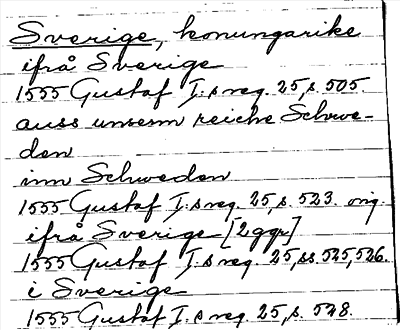 Sverige, konungarike
ifrå Sverige
1555 Gustaf I:s reg. 25, s. 505.
auss unserm reiche Schwe-
den
inn Schweden
1555 Gustaf I:s reg. 25, s. 523. orig.
ifrå Sverige [2 ggr]
1555 Gustaf I:s reg. 25, ss. 525, 526.
i Sverige
1555 Gustaf I:s reg. 25, s. 528.